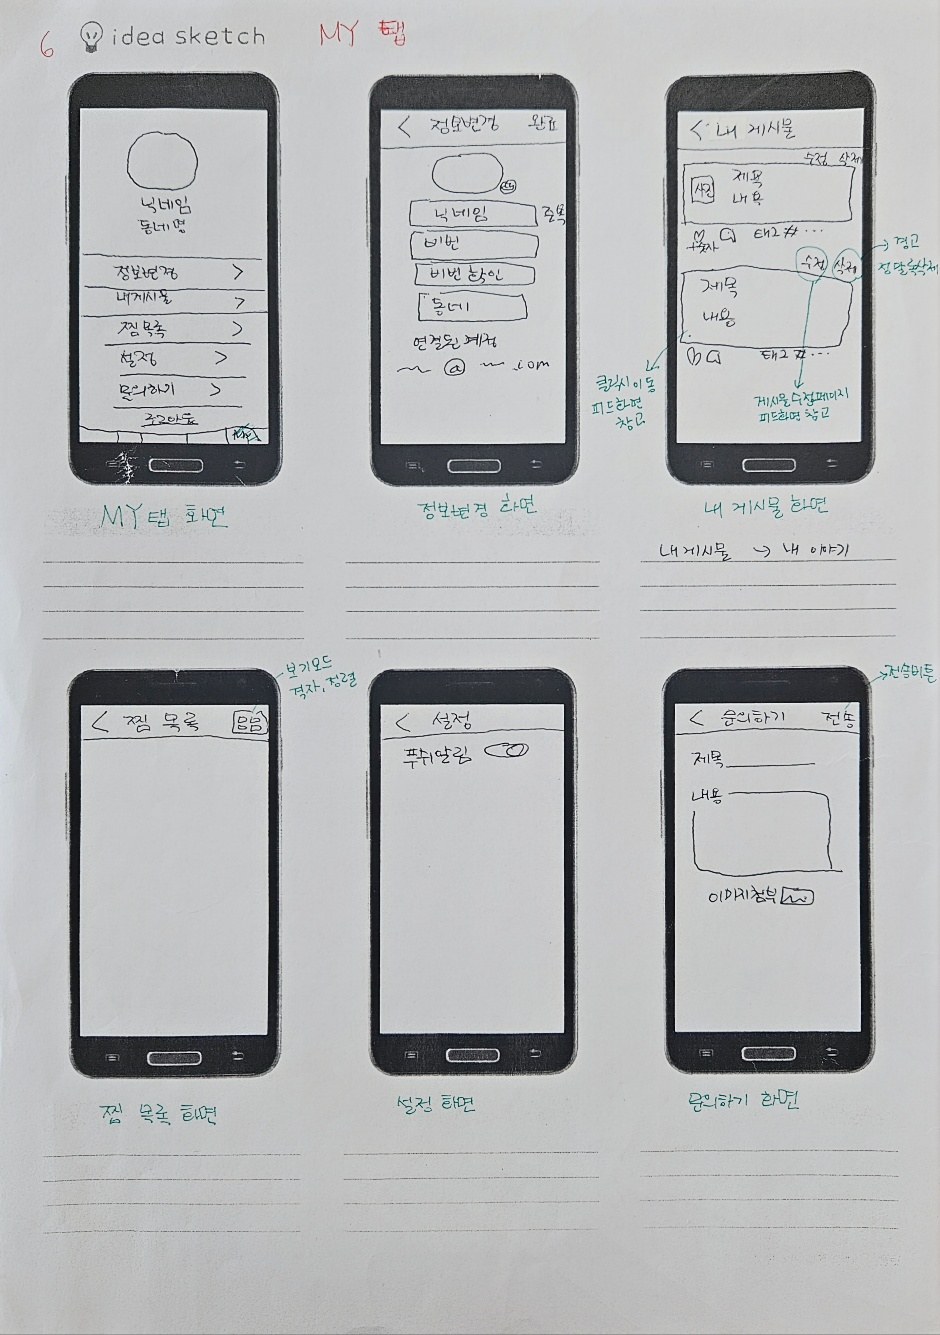 6 idea sketch MY 탭
닉네임
동네명
정보변경 >
내게시물 >
찜목록 >
설정 >
문의하기 >
로그아웃
MY 탭 화면
< 정보변경 완료
닉네임 중복
비번
비번 확인
동네
연결된 계정
~ @ ~.com
정보변경 화면
< 내 게시물
수정 삭제
사진 제목
내용
숫자 태그 #...
수정 삭제
→ 경고
정말로 삭제
제목
내용
태그 #...
클릭시 이동
피드화면
참고
게시물 수정페이지
피드화면 참고
내 게시물 화면
내 게시물 → 내 이야기
< 찜 목록
보기모드
격자, 정렬
찜 목록 화면
< 설정
푸쉬알림
설정 화면
< 문의하기 전송
→ 전송버튼
제목
내용
이미지첨부
문의하기 화면